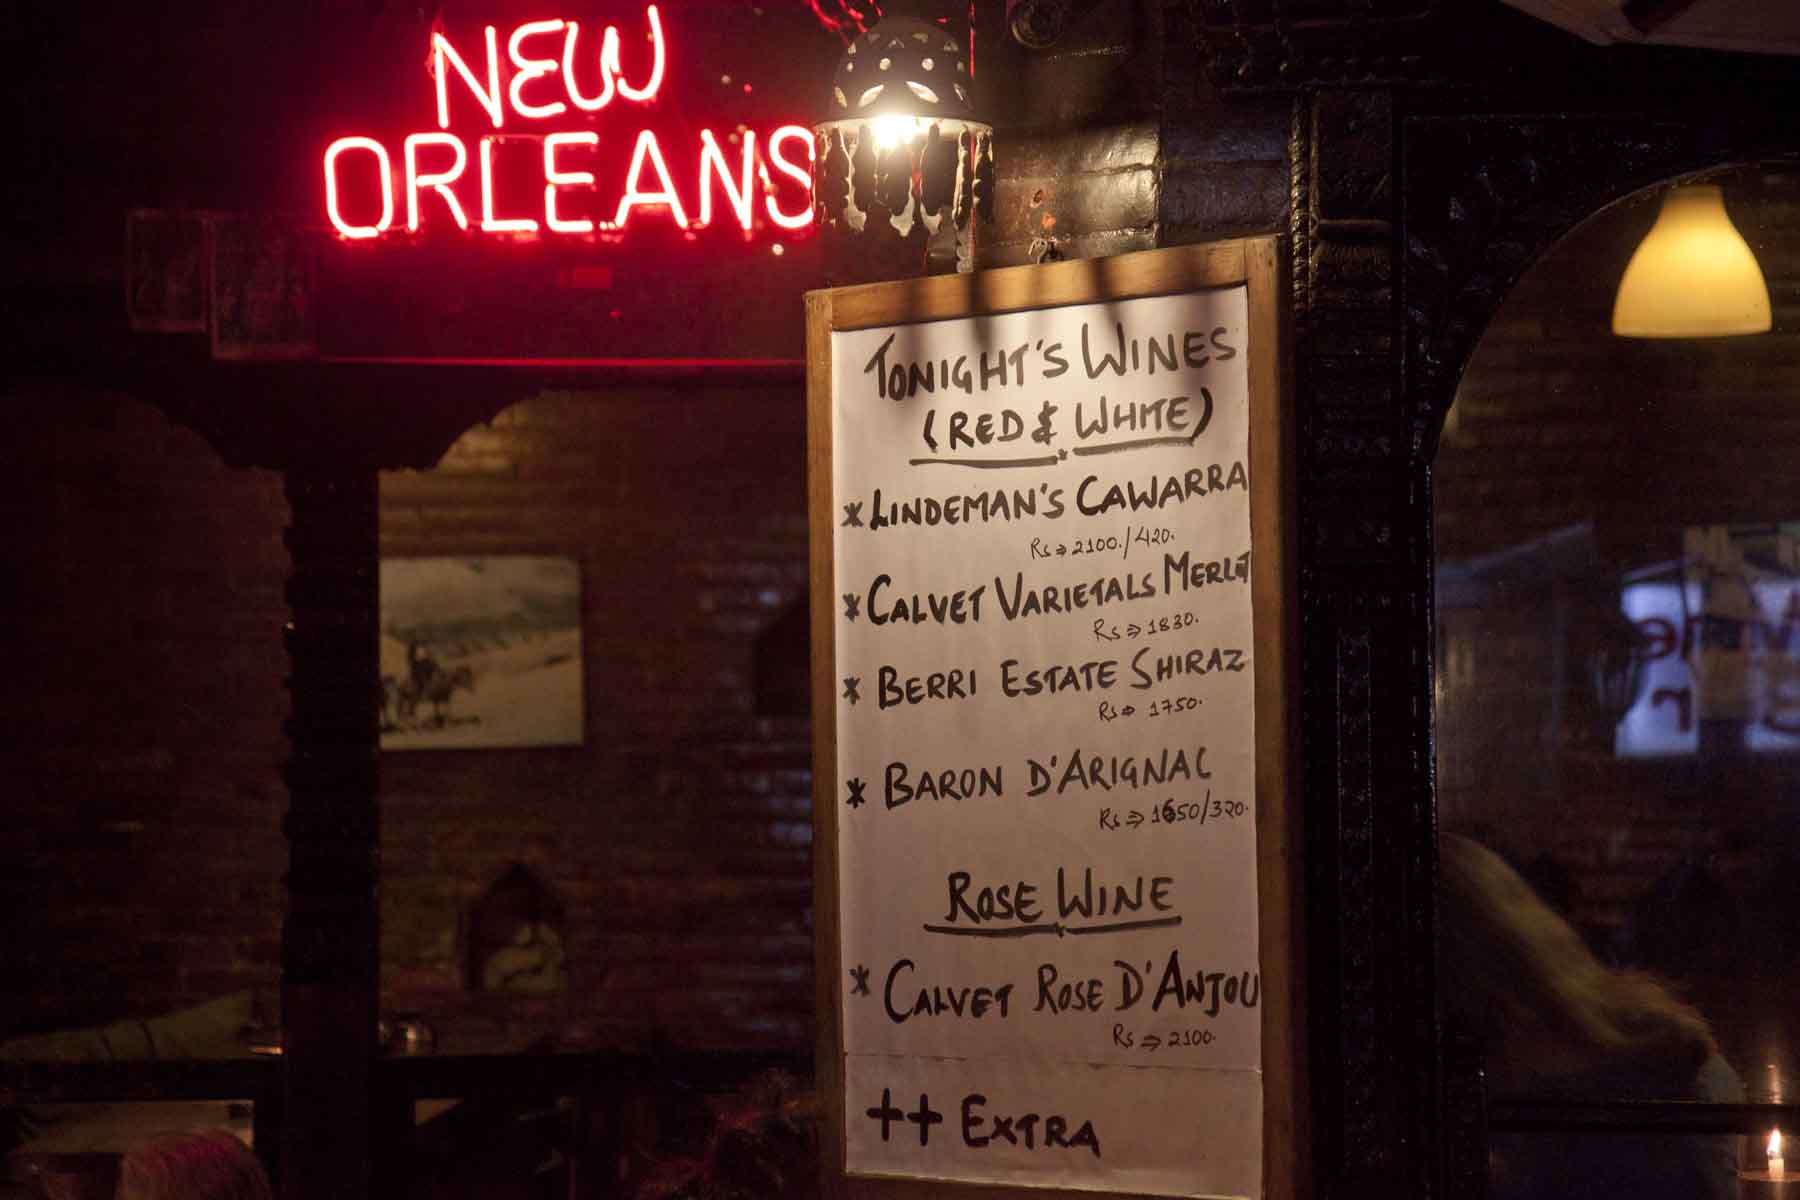 NEW
ORLEANS
TONIGHT'S WINES
(RED & WHITE)
* LINDEMAN'S CAWARRA
Rs ⇒ 2100./420.
* CALVET VARIETALS MERLOT
Rs ⇒ 1830.
* BERRI ESTATE SHIRAZ
Rs ⇒ 1750.
* BARON D'ARIGNAC
Rs ⇒ 1650/320.
ROSE WINE
* CALVET ROSE D'ANJOU
Rs ⇒ 2100.
++ EXTRA